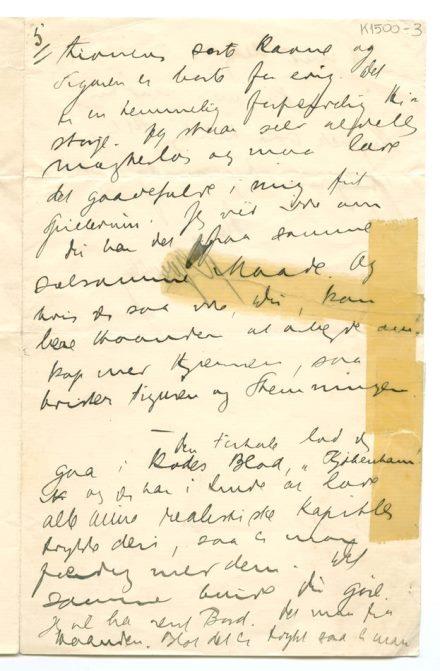 K1500-3
5
kronens sorte Kaabe og
Figuren er borte for mig. Det
er en temmelig forfærdelig Hi-
storje. Jeg staar selv aldeles
magtesløs og maa lade
det gaadefulde i mig frit
Jeg ved ikke om
du har det paa samme
selsomme Maade. Og
hvis du saa ikke, du, kan
lære Haanden at arbejde om
kap med Hjernen, saa
brister Figuren og Stemningen.
Den lod du
gaa i Rodes Blad, „Kjøbenhavn"
og du har i Sinde at lave
alle mine realistiske Kapitler
trykte deri, saa er man
færdig med dem. Det
samme kunde du gøre.
Jeg vil ha rent Bord. Det maa fra
Haanden. Blot det er trykt saa er man